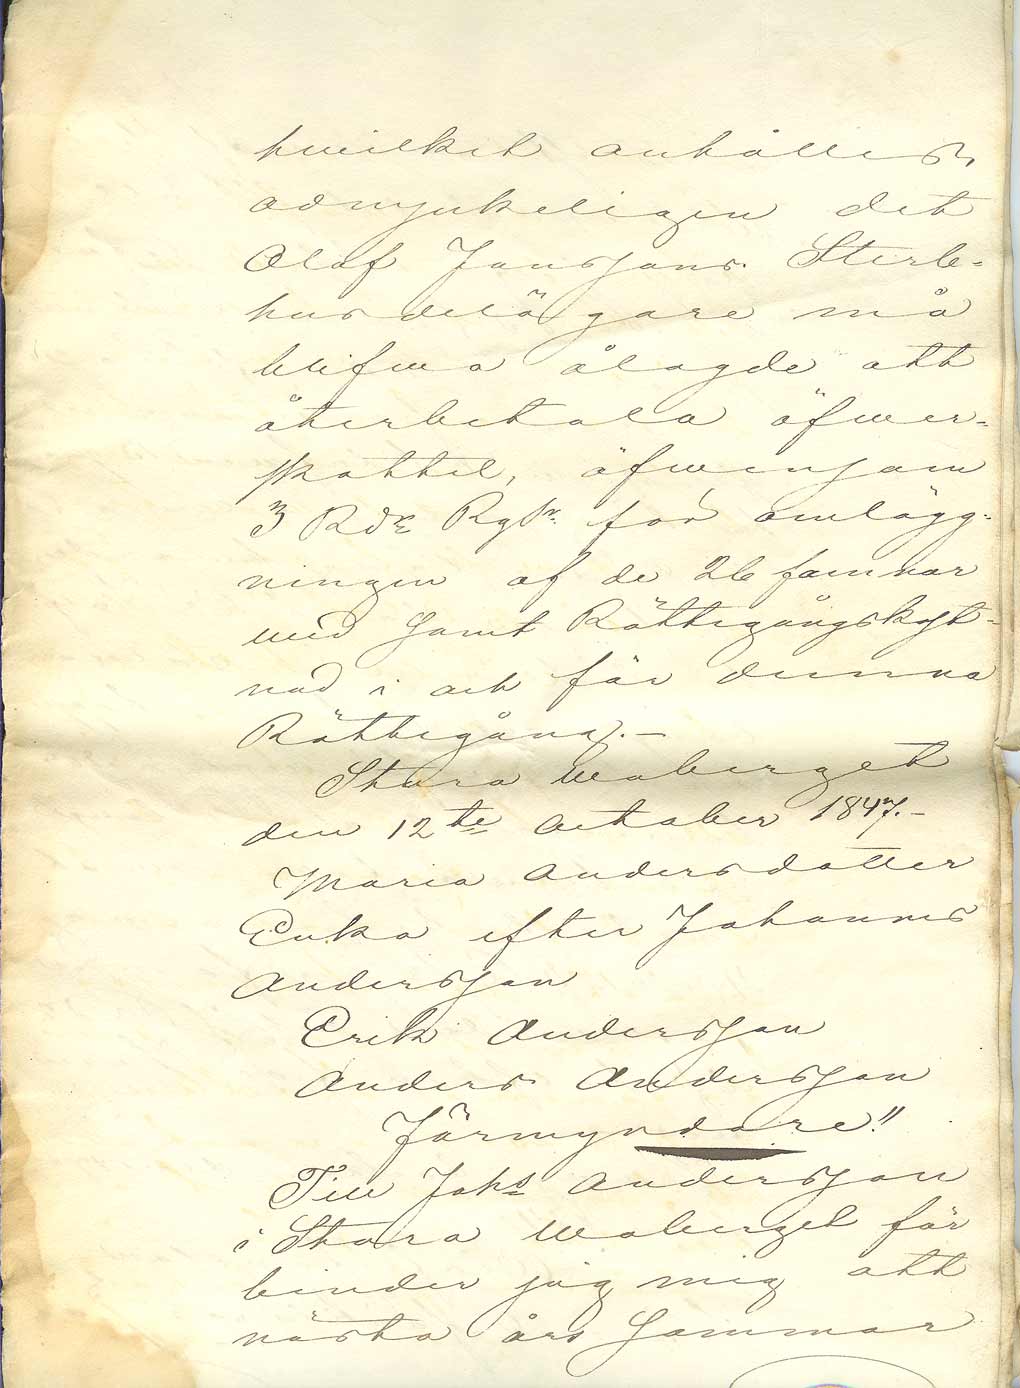 hwilket anhålles,
ödmjukeligen det
Olof Janssons Sterb-
husdelägare må
blifwa ålagde att
återbetala öfwer-
skottet, äfwensom
3 Rdr Rgs. för omlägg-
ningen af de 26 famnar
wed samt Rättegångskost-
nad i och för denna
Rättegång.—
Stora Waberget
den 12te October 1847.—
Maria Andersdotter
Enka efter Johannes
Andersson
Erik Andersson
Anders Andersson
Förmyndare"
Till Johs Andersson
i Stora Waberget för
binder jag mig att
nästa års Sommar